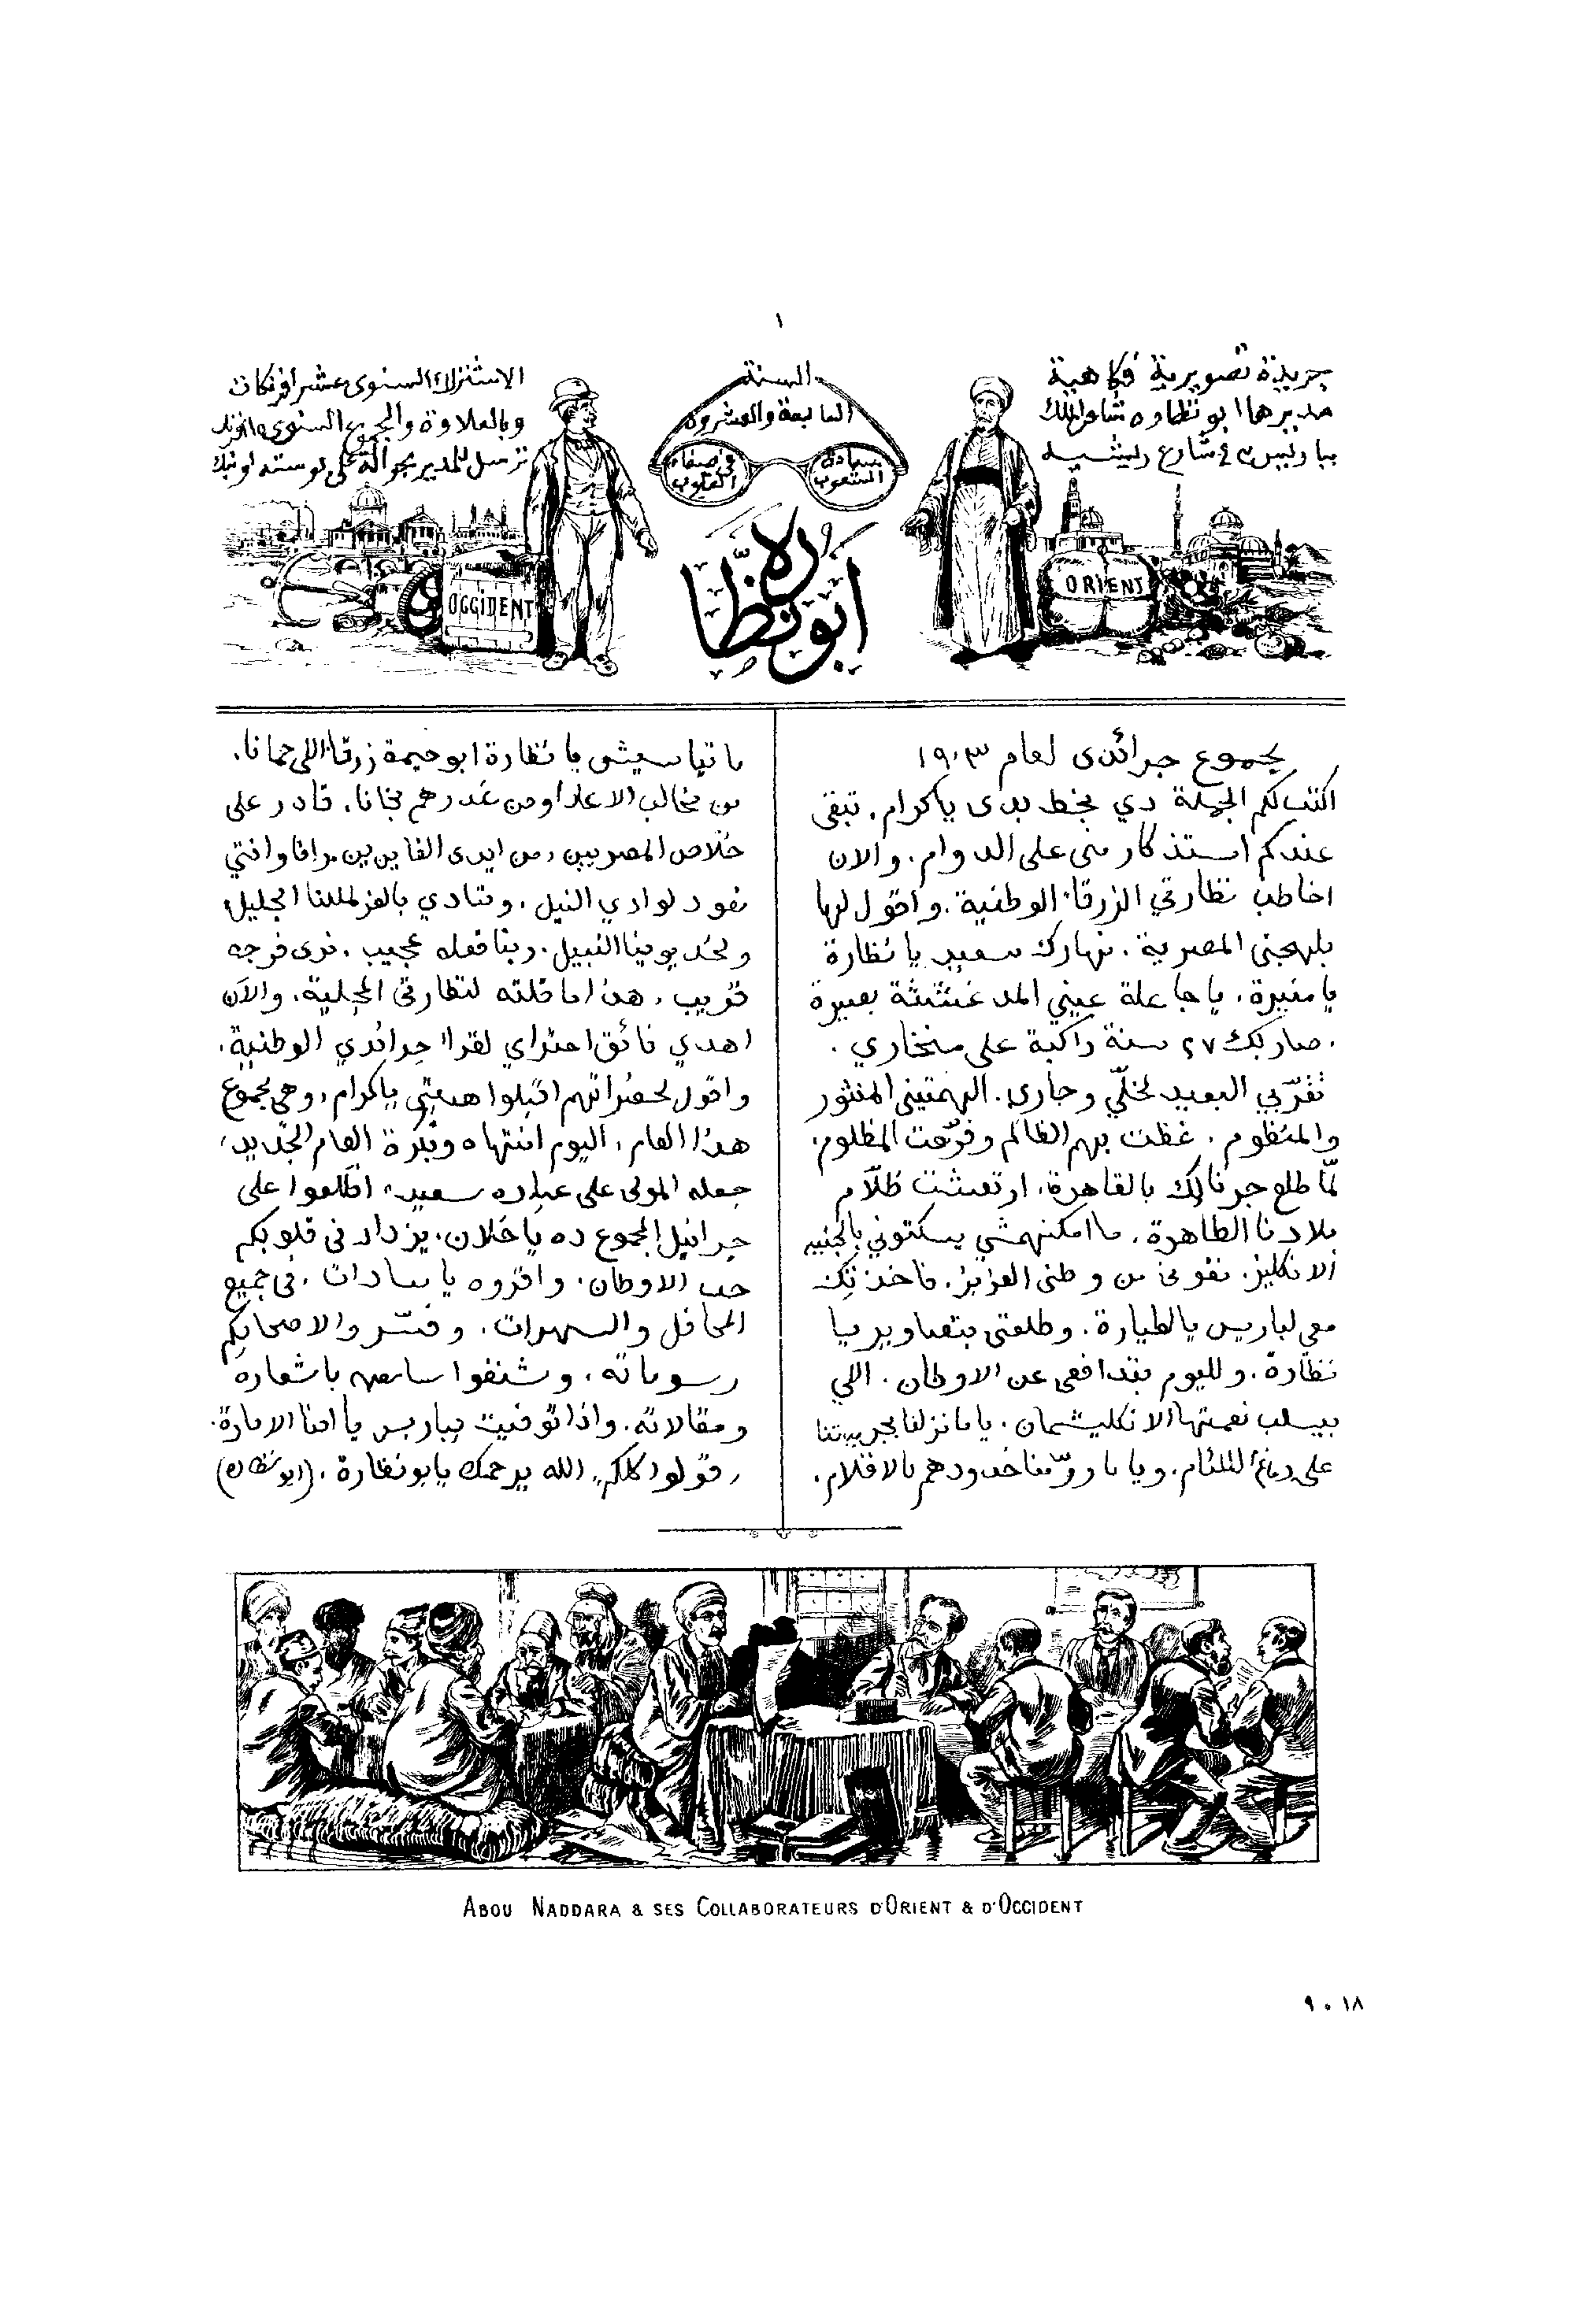 ١
جريدة تصويرية فكاهية
مديرها ابو نظاره شاعر الملك
بباريس ٣ في شارع ريشيه
السنة
السابعة والعشرون
سعادة الشعوب
في صفاء القلوب
ابو نظاره
الاشتراك السنوى عشر افرنكات
وبالعلاوة والمجموع السنوى
ترسل للمدير بحوالة على بوسته او بنك
ORIENT
OCCIDENT
مجموع جرائدى لعام ١٩٠٣
اكتب لكم الجملة دي بخط يدى ياكرام. تبقى
عندكم استذكار منى على الدوام. والان
اخاطب نظارتي الزرقاء الوطنية. واقول لها
بلهجتى المصرية. نهارك سعيد يا نظارة
يا منيرة. يا جاعلة عيني المدغششة بصيرة
. صار بك ٢٧ سنة راكبة على منخاري.
تقرّبي البعيد لخلّي وجاري. الهمتينى المنثور
والمنظوم. غظت بهم الظالم وفرّحت المظلوم.
لمّا طلع جرنالك بالقاهرة. ارتعشت ظلّام
بلادنا الطاهرة. ما امكنهمشي يسكتوني بالجنيه
الانكليز. نفونى من وطنى العزيز. فاخذتك
معي لباريس يا لطيارة. وطلعتى بتصاوير يا
نظارة. ولليوم بتدافعى عن الاوطان. اللي
بيسلب نعمتها الانكليشمان. ياما نزلنا بجريدتنا
على دماغ اللئام. وياما روّمنا خدودهم بالاقلام.
ما تياسيش يا نظارة ابو حيمة زرقاء اللى حمانا.
من مخالب الاعدا ومن غدرهم نجانا. قادر على
خلاص المصريين من ايدى الفاين
نعود لوادي النيل. وننادي بالعز لمللنا الجليل
ولخديوينا النبيل. ربنا فعله عجيب. نرى فرجه
قريب. هذا ما قلته لنظارتى المجلية. والآن
اهدي فائق احترامي لقراء جرائدي الوطنية.
واقول لحضراتهم اقبلوا هديتى ياكرام. وهى مجموع
هذا العام. اليوم انتهاه وبكرة العام الجديد.
جعله المولى على عباده سعيد. اطّلعوا على
جرانيل المجموع ده ياخلان. يزداد فى قلوبكم
حب الاوطان. واقروه يا سادات. فى جميع
المحافل والسهرات. وفسّروا لاصحابكم
رسوماته. وشنفوا سامعهم باشعاره
ومقالاته. واذا توفيت بباريس يا امنا الامارة.
قولوا كلكم الله يرحمك يابونظارة. (ابو نظاره)
ABOU NADDARA & SES COLLABORATEURS D'ORIENT & D'OCCIDENT
٩٠١٨